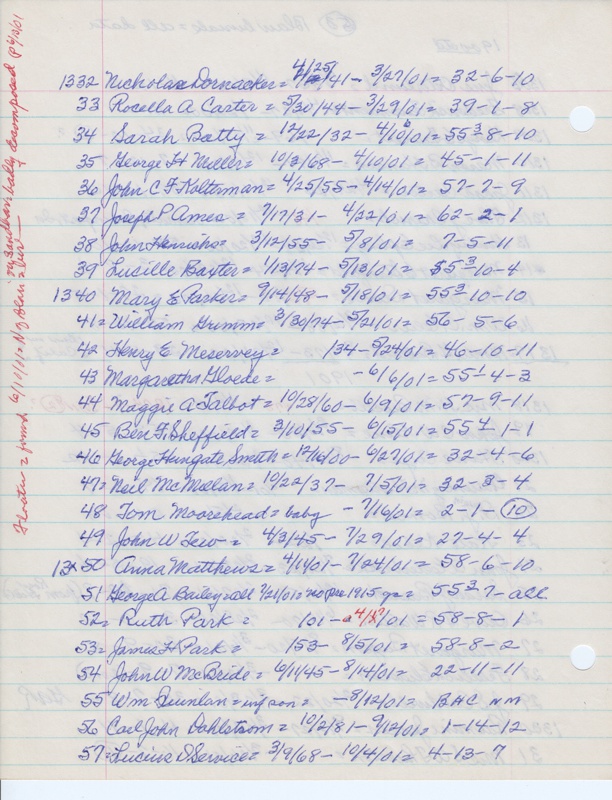 1332 Nicholas Dornacker = 4/25/41 - 3/27/01 = 32-6-10
33 Rosella A Carter = 5/30/44 - 3/29/01 = 39-1-8
34 Sarah Batty = 12/22/32 - 4/10/01 = 55 3 8-10
35 George H Miller = 10/3/68 - 4/10/01 = 45-1-11
36 John C F Kolterman = 4/25/55 - 4/14/01 = 57-7-9
37 Joseph P Ames = 7/17/31 - 4/22/01 = 62-2-1
38 John Hinrichs = 3/12/55 - 5/8/01 = 7-5-11
39 Lucille Baxter = 1/13/74 - 5/13/01 = 55 3 10-4
1340 Mary E Parker = 9/14/48 - 5/18/01 = 55 3 10-10
41 = William Grimm = 3/30/74 - 5/21/01 = 56-5-6
42 Henry E. Meservey = 134 - 5/24/01 = 46-10-11
43 Margaretha Gloede = - 6/6/01 = 55 1-4-3
44 Maggie A Talbot = 10/28/60 - 6/9/01 = 57-9-11
45 Ben F. Sheffield = 3/10/55 - 6/15/01 = 55 1-1
46 George Hungate Smith = 12/16/00 - 6/27/01 = 32-4-6
47 = Neil McMillan = 10/22/37 - 7/5/01 = 32-3-4
48 Tom Moorehead = baby - 7/16/01 = 2-1-10
49 John W Tew = 4/3/45 - 7/29/01 = 27-4-4
1350 Anna Matthews = 4/1/01 - 7/24/01 = 58-6-10
51 George A Bailey = all 7/21/01 = no pre 1915 = 55 3 7-all
52 = Ruth Park = 101 - 4/ /01 = 58-8-1
53 = James H Park = 153 - 8/5/01 = 58-8-2
54 John W McBride = 6/11/45 - 8/14/01 = 22-11-11
55 Wm Quinlan = inf son = - 8/12/01 = BHC NM
56 Carl John Dahlstrom = 10/2/81 - 9/12/01 = 1-14-12
57 = Lucius D Service = 3/9/68 - 10/4/01 = 4-13-7
Floater = found 6/11/01 = badly decomposed